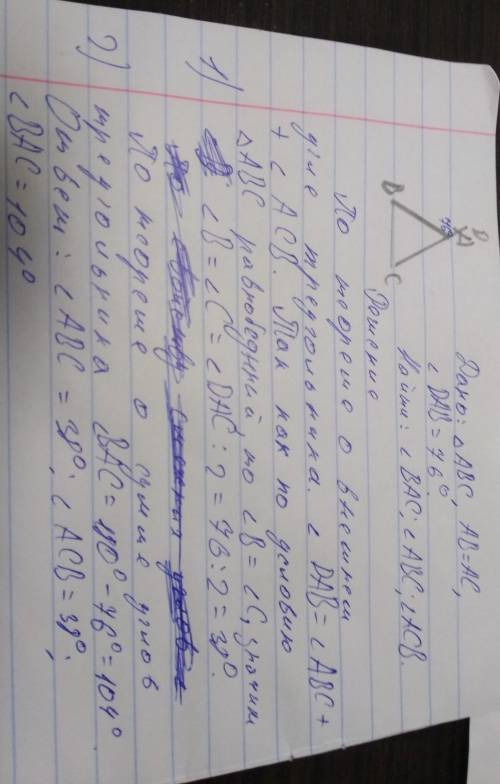 Дано: △ABC, AB=AC,
∠DAB=76°.
Найти: ∠BAC; ∠ABC; ∠ACB.
D
76°
A
B
C
Решение
По теореме о внешнем
угле треугольника. ∠DAB=∠ABC+
+ ∠ACB. Так как по условию
△ABC равнобедренный, то ∠B=∠C, значит
1) ∠B=∠C=∠DAC:2=76:2=38°.
По теореме о сумме углов
2) треугольника BAC=180°-76°=104°
Ответ: ∠ABC=38°; ∠ACB=38°;
∠BAC=104°